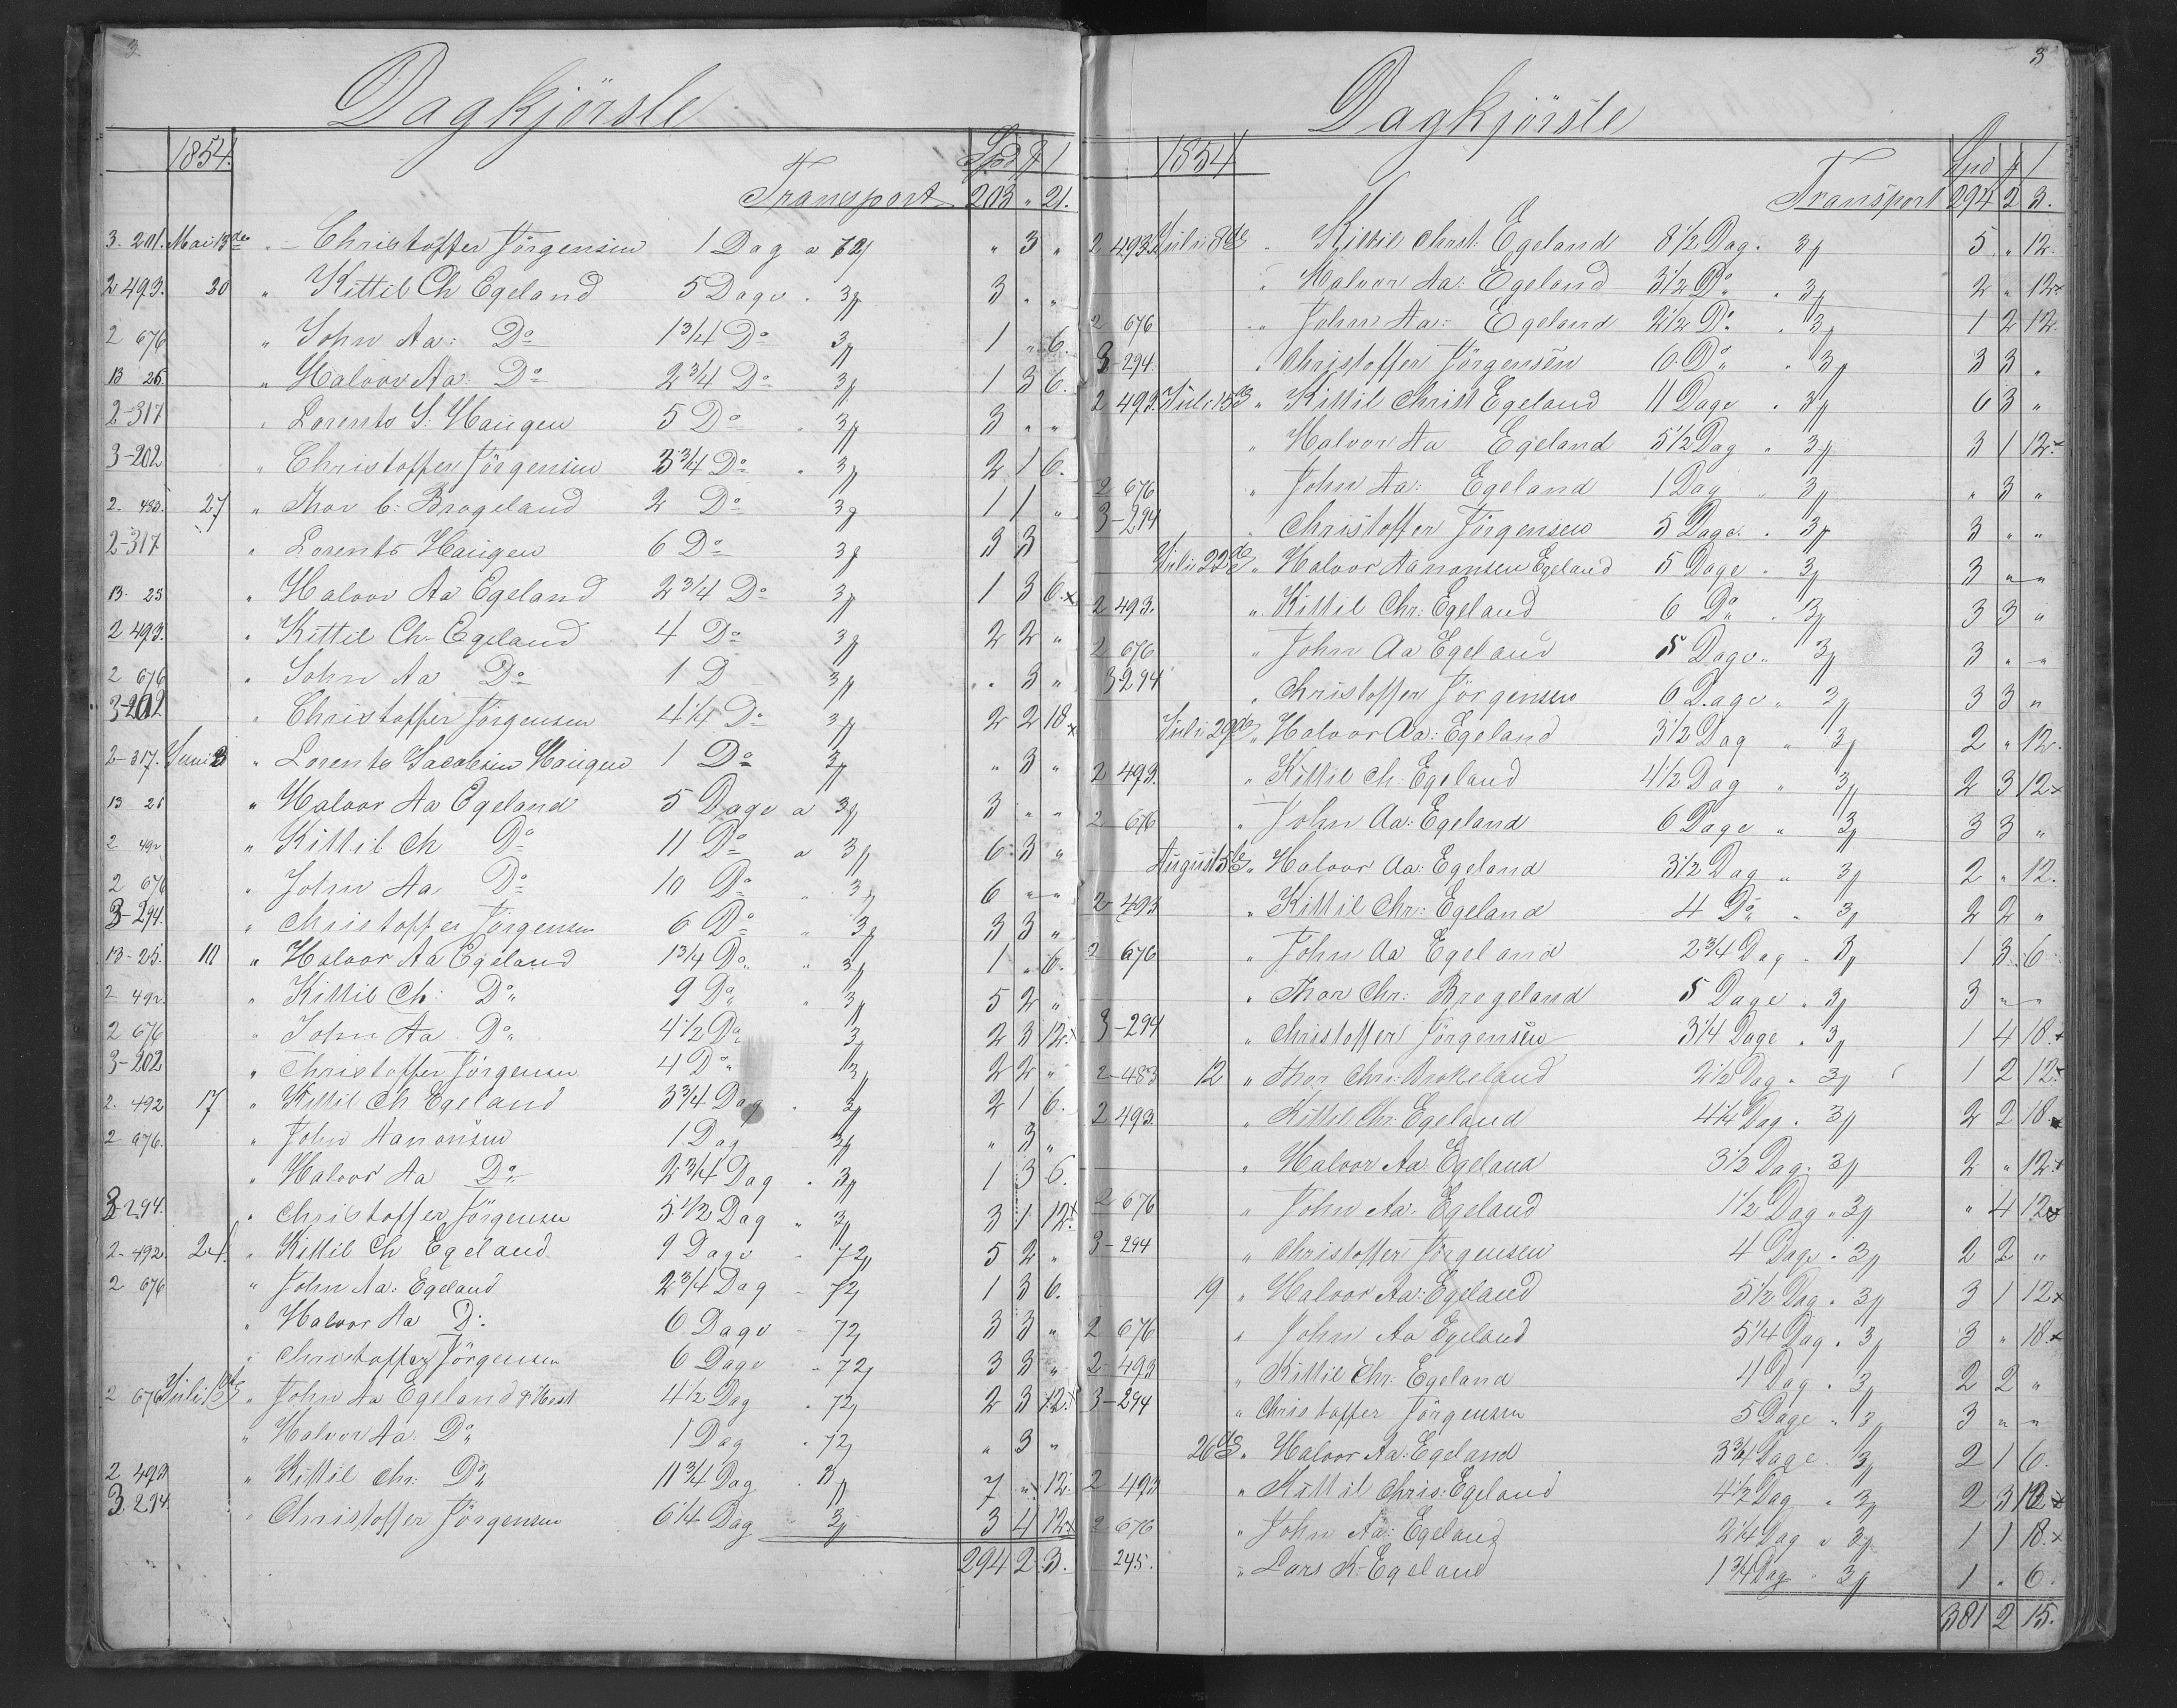 3.
Dagkjörsle
1854. Spd
Transport 203 " 21.
3. 201. Mai 13de " Christoffer Jörgensen 1 Dag a 72 " 3 "
2 493. 20 " Kittil Ch Egeland 5 Dage " 3 3 " "
2 676 " John Aa: Do 1 3/4 Do 3 1 " 6.
13 25 " Halvor Aa: Do 2 3/4 Do 3 1 3 6.
2-317 " Lorents S: Haugen 5 Do " 3 3 " "
3-202 " Christoffer Jörgensen 3 3/4 Do " 3 2 1 6.
2. 483. 27 " Thor C: Brogeland 2 Do 3 1 1 "
2-317 " Lorents Haugen 6 Do 3 3 3
13. 25 " Halvor Aa Egeland 2 3/4 Do 3 1 3 6.x
2 493. " Kittil Ch Egeland 4 Do 3 2 2 "
2 676 " John Aa Do 1 D 3 " 3 "
3-202 " Christoffer Jörgensen 4 1/4 Do 3 2 2 18 x
2-317. Juni 3 " Lorents Jacobsen Haugen 1 Do 3 " 3 "
13 25 " Halvor Aa Egeland 5 Dage a 3 3 " "
2 492 " Kittil Ch Do 11 Do a 3 6 3 "
2 676 " John Aa Do 10 Do " 3 6 " "
3-294. " Christoffer Jörgensen 6 Do " 3 3 3 "
13-25. 10 " Halvor Aa Egeland 1 3/4 Do " 3 1 " 6.
2 492. " Kittil Ch: Do 9 Do " 3 5 2 "
2 676 " John Aa Do 4 1/2 Do 3 2 3 12.x
3-202 " Christoffer Jörgensen 4 Do 3 2 2 "
2. 492 17 " Kittil Ch Egeland 3 3/4 Dag " 3 2 1 6.
2 676. " John Aanonsen 1 Dag 3 " 3 "
" Halvor Aa Do 2 3/4 Dag " 3 1 3 6.
3-294. " Christoffer Jörgensen 5 1/2 Dag " 3 3 1 12.x
2-492. 24. " Kittil Ch Egeland 9 Dage " 72 5 2 "
2 676 " John Aa: Egeland 2 3/4 Dag " 72 1 3 6.
" Halvor Aa D: 6 Dage " 72 3 3 "
" Christoffer Jörgensen 6 Dage " 72 3 3 "
2 676 Juli 1ste " John Aa Egeland & Hest 4 1/2 Dag " 72 2 3 12.x
" Halvor Aa: Do 1 Dag " 72 " 3 "
2 493 " Kittil Chr: Do 11 3/4 Dag " 3 7 " 12.
3. 294. " Christoffer Jörgensen 6 1/4 Dag " 3 3 4 12x
294 2 3.
3
Dagkjörsle
1854 Spd
Transport 294 2 3.
2 493. Juli 8de " Kittil Christ: Egeland 8 1/2 Dag " 3 5 " 12.
" Halvor Aa: Egeland 3 1/2 Do " 3 2 " 12x
2 676 " John Aa: Egeland 2 1/2 Do " 3 1 2 12.
3-294. " Christoffer Jörgensen 6 Do " 3 3 3 "
2 493. Juli 15de " Kittil Christ Egeland 11 Dage " 3 6 3 "
" Halvor Aa Egeland 5 1/2 Dag " 3 3 1 12.x
2 676 " John Aa: Egeland 1 Dag " 3 " 3 "
3-294 " Christoffer Jörgensen 5 Dage " 3 3 " "
Juli 22de " Halvor Aanonsen Egeland 5 Dage " 3 3 " "
2 493. " Kittil Chr: Egeland 6 Do " 3 3 3 "
2 676 " John Aa Egeland 5 Dage " 3 3 " "
3-294 " Christoffer Jörgensen 6 Dage " 3 3 3 "
Juli 29de " Halvor Aa: Egeland 3 1/2 Dag " 3 2 " 12.
2 493. " Kittil Ch. Egeland 4 1/2 Dag " 3 2 3 12x
2 676 " John Aa: Egeland 6 Dage " 3 3 3 "
August 5te " Halvor Aa: Egeland 3 1/2 Dag " 3 2 " 12.
2-493 " Kittil Chr: Egeland 4 Do " 3 2 2 "
2 676 " John Aa Egeland 2 3/4 Dag " 3 1 3 6
" Thor Chr: Brogeland 5 Dage " 3 3 " "
3-294 " Christoffer Jörgensen 3 1/4 Dage " 3 1 4 18.x
2-483 12 " Thor Chr: Brokeland 2 1/2 Dag " 3 1 2 12.x
2 493. " Kittil Chr: Egeland 4 1/4 Dag " 3 2 2 18.x
" Halvor Aa: Egeland 3 1/2 Dag " 3 2 " 12x
2 676 " John Aa: Egeland 1 1/2 Dag " 3 " 4 12x
3-294 " Christoffer Jörgensen 4 Dage " 3 2 2 "
19 " Halvor Aa: Egeland 5 1/2 Dag " 3 3 1 12x
2 676 " John Aa Egeland 5 1/4 Dag " 3 3 " 18.x
2-493 " Kittil Chr: Egeland 4 Dag " 3 2 2 "
3-294 " Christoffer Jörgensen 5 Dage " 3 3 " "
26de " Halvor Aa: Egeland 3 3/4 Dage " 3 2 1 6.
2 493 " Kittil Chris: Egeland 4 1/2 Dag " 3 2 3 12x
2 676 " John Aa: Egeland 2 1/4 Dag " 3 1 1 18.x
245. " Lars K: Egeland 1 3/4 Dag " 3 1 " 6.
381 2 15.